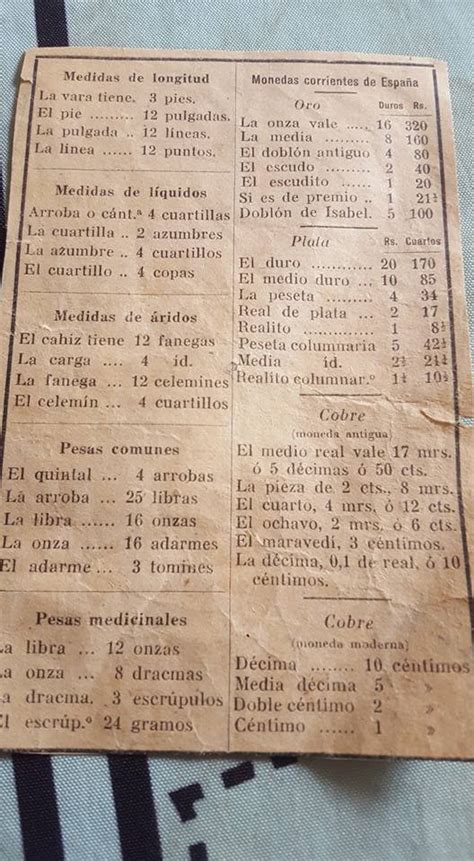 Medidas de longitud
La vara tiene. 3 pies.
El pie ......... 12 pulgadas.
La pulgada .. 12 líneas.
La línea ...... 12 puntos.
Medidas de líquidos
Arroba o cánt.ª 4 cuartillas
La cuartilla .. 2 azumbres
La azumbre .. 4 cuartillos
El cuartillo .. 4 copas
Medidas de áridos
El cahiz tiene 12 fanegas
La carga .... 4 id.
La fanega ... 12 celemines
El celemín ... 4 cuartillos
Pesas comunes
El quintal ... 4 arrobas
La arroba ... 25 libras
La libra ...... 16 onzas
La onza ..... 16 adarmes
El adarme ... 3 tomines
Pesas medicinales
La libra ... 12 onzas
La onza ... 8 dracmas
La dracma. 3 escrúpulos
El escrúp.º 24 gramos
Monedas corrientes de España
Oro Duros Rs.
La onza vale ..... 16 320
La media ........ 8 160
El doblón antiguo 4 80
El escudo ....... 2 40
El escudito ..... 1 20
Si es de premio .. 1 21¼
Doblón de Isabel. 5 100
Plata Rs. Cuartos
El duro ........... 20 170
El medio duro ... 10 85
La peseta ........ 4 34
Real de plata ... 2 17
Realito ........... 1 8½
Peseta columnaria 5 42½
Media id. 2½ 21¼
Realito columnar.º 1¼ 10½
Cobre
(moneda antigua)
El medio real vale 17 mrs.
ó 5 décimas ó 50 cts.
La pieza de 2 cts., 8 mrs.
El cuarto, 4 mrs. ó 12 cts.
El ochavo, 2 mrs. ó 6 cts.
El maravedí, 3 céntimos.
La décima, 0,1 de real, ó 10
céntimos.
Cobre
(moneda moderna)
Décima ........ 10 céntimos
Media décima 5 »
Doble céntimo 2 »
Céntimo ...... 1 »